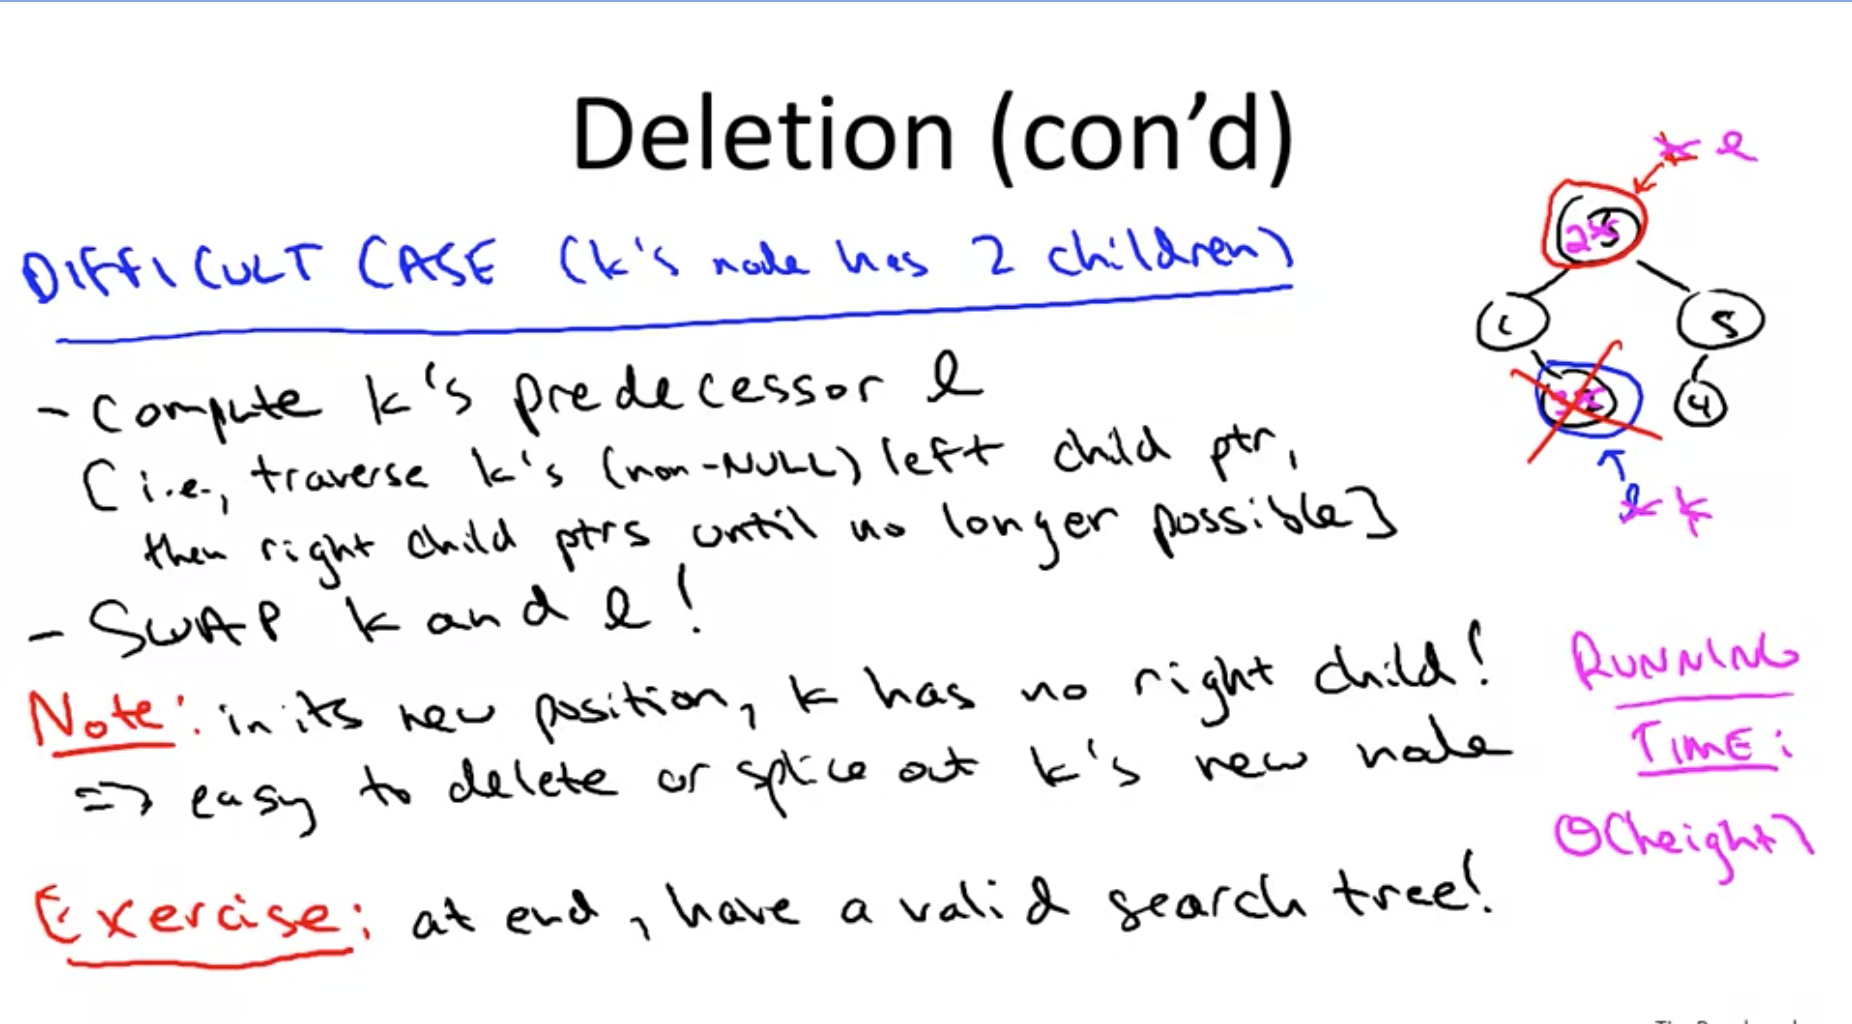 Deletion (con'd)
DIFFICULT CASE (k's node has 2 children)
- Compute k's predecessor l
[i.e., traverse k's (non-NULL) left child ptr,
then right child ptrs until no longer possible]
- SWAP k and l!
Note: in its new position, k has no right child!
=> easy to delete or splice out k's new node
Exercise: at end, have a valid search tree!
l
1
5
4
k
RUNNING
TIME:
Θ(height)